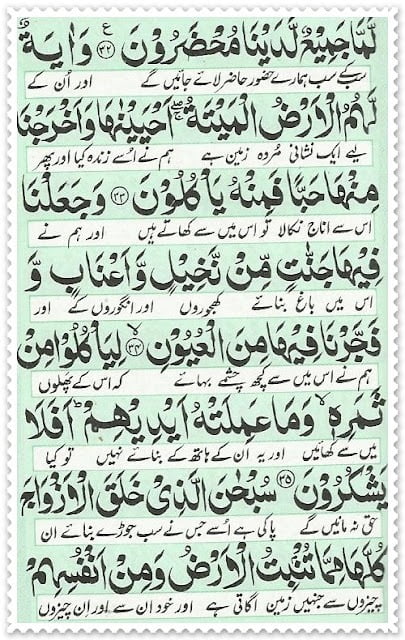 لَّمَّا جَمِيْعٌ لَّدَيْنَا مُحْضَرُوْنَ ۝۳۲ ع وَاٰيَةٌ
سب کے سب ہمارے حضور حاضر لائے جائیں گے اور اُن کے
لَّهُمُ الْاَرْضُ الْمَيْتَةُ ۚۖ اَحْيَيْنٰهَا وَاَخْرَجْنَا
لیے ایک نشانی مُردہ زمین ہے ہم نے اُسے زندہ کیا اور پھر
مِنْهَا حَبًّا فَمِنْهُ يَاْكُلُوْنَ ۝۳۳ وَجَعَلْنَا
اس سے اناج نکالا تو اس میں سے کھاتے ہیں اور ہم نے
فِيْهَا جَنّٰتٍ مِّنْ نَّخِيْلٍ وَّاَعْنَابٍ وَّ
اس میں باغ بنائے کھجوروں اور انگوروں کے اور
فَجَّرْنَا فِيْهَا مِنَ الْعُيُوْنِ ۝۳۴ۙ لِيَاْكُلُوْا مِنْ
ہم نے اس میں سے کچھ چشمے بہائے کہ اس کے پھلوں
ثَمَرِهٖ ۙ وَمَا عَمِلَتْهُ اَيْدِيْهِمْ ؕ اَفَلَا
میں سے کھائیں اور یہ اُن کے ہاتھ کے بنائے نہیں تو کیا
يَشْكُرُوْنَ ۝۳۵ سُبْحٰنَ الَّذِيْ خَلَقَ الْاَزْوَاجَ
حق نہ مانیں گے پاکی ہے اُسے جس نے سب جوڑے بنائے ان
كُلَّهَا مِمَّا تُنْۢبِتُ الْاَرْضُ وَمِنْ اَنْفُسِهِمْ
چیزوں سے جنہیں زمین اگاتی ہے اور خود ان سے اور ان چیزوں